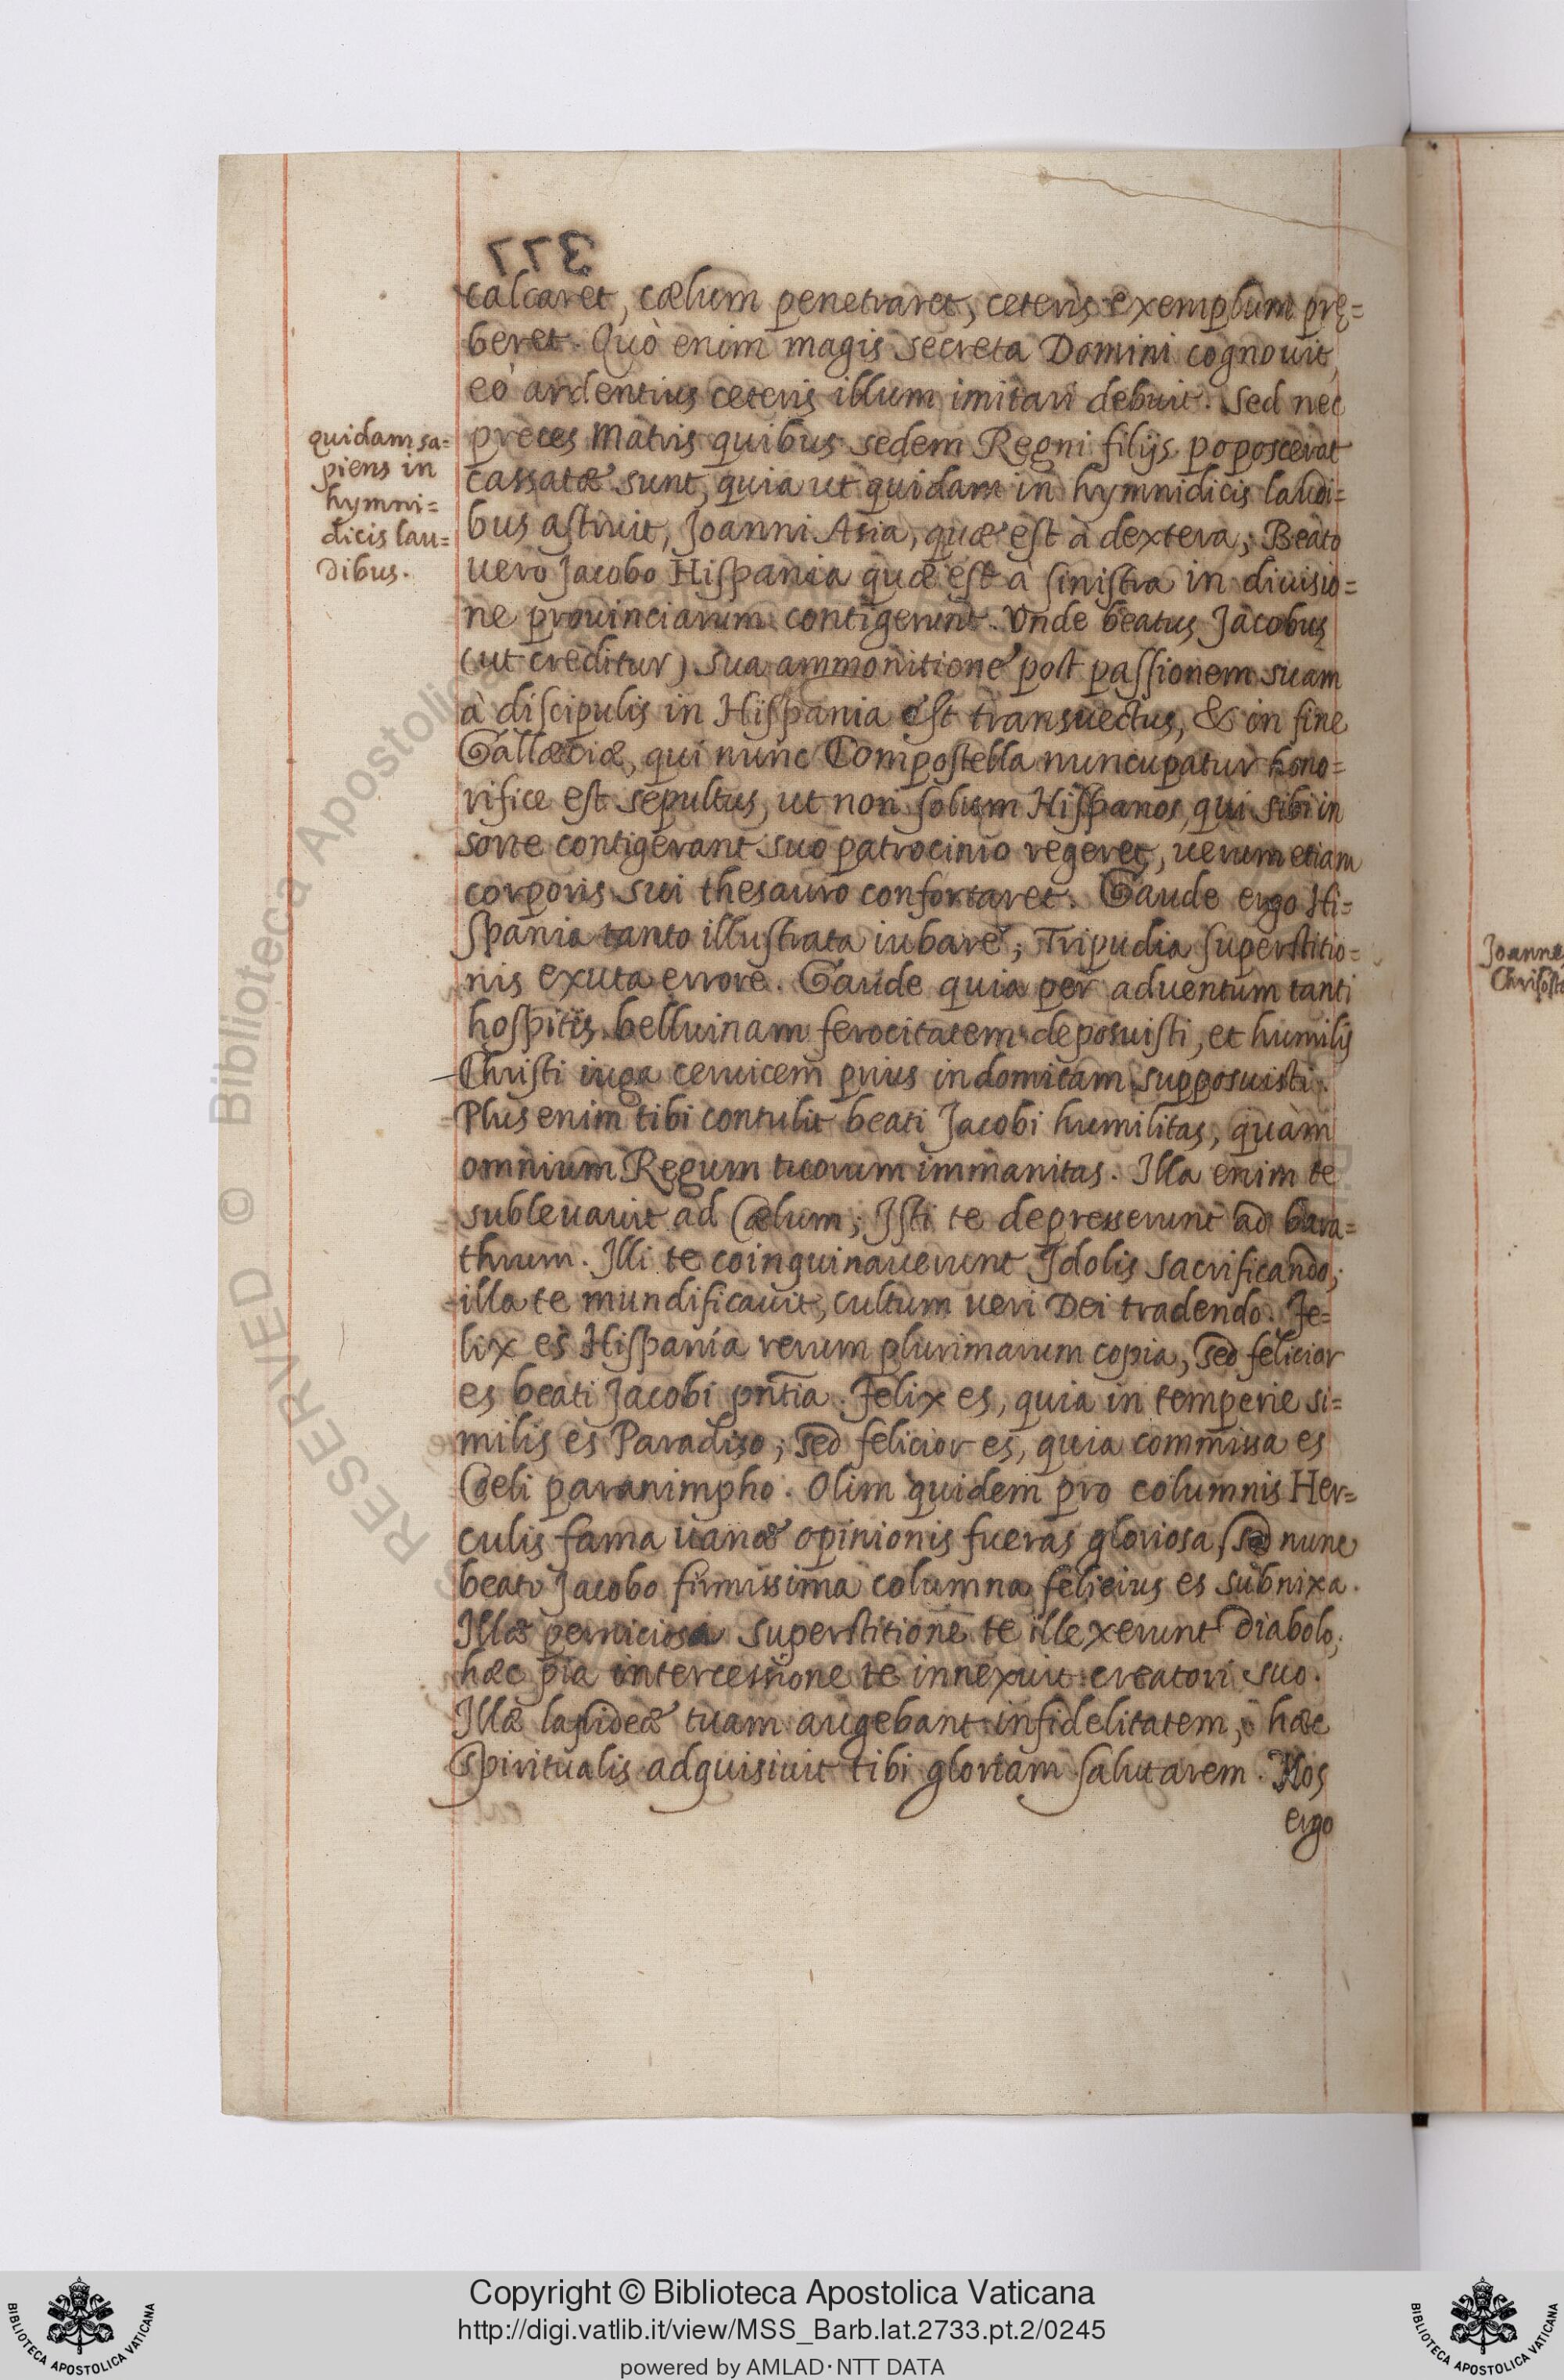 377
calcaret, cælum penetraret, ceteris exemplum prę=
beret. Quò enim magis secreta Domini cognouit,
eò ardentius ceteris illum imitari debuit. Sed nec
preces Matris quibus sedem Regni filijs poposcerat
cassatæ sunt, quia ut quidam in hymnidicis laudi=
bus astruit, Joanni Asia, quæ est à dextera; Beato
uero Jacobo Hispania quæ est à sinistra in diuisio=
ne prouinciarum contigerunt. Vnde beatus Jacobus
(ut creditur) sua ammonitione post passionem suam
à discipulis in Hispania est transuectus, & in fine
Gallæciæ, qui nunc Compostella nuncupatur hono=
rifice est sepultus, ut non solum Hispanos, qui sibi in
sorte contigerant suo patrocinio regeret, uerum etiam
corporis sui thesauro confortaret. Gaude ergo Hi=
spania tanto illustrata iubare, Tripudia superstitio=
nis exuta errore. Gaude quia per aduentum tanti
hospitis belluinam ferocitatem deposuisti, et humilis
Christi iuga ceruicem prius indomitam supposuisti.
Plus enim tibi contulit beati Jacobi humilitas, quàm
omnium Regum tuorum immanitas. Illa enim te
subleuauit ad Cælum; Isti te depresserunt ad bara=
thrum. Illi te coinquinauerunt Idolis sacrificando,
illa te mundificauit, cultum ueri Dei tradendo. Fe=
lix es Hispania rerum plurimarum copia, sed felicior
es beati Jacobi pñtia. Felix es, quia in temperie si=
milis es Paradiso; sed felicior es, quia commissa es
Cœli paranimpho. Olim quidem pro columnis Her=
culis fama uanæ opinionis fueras gloriosa, sed nunc
beato Jacobo firmissima columna felicius es subnixa.
Illæ perniciosa superstitione te illexerunt diabolo,
hæc pia intercessione te innexuit creatori suo.
Illæ lapideæ tuam augebant infidelitatem, hæc
spiritualis adquisiuit tibi gloriam salutarem. Nos
ergo
quidam sa=
piens in
hymni=
dicis lau=
dibus.
RESERVED © Biblioteca Apostolica
Copyright © Biblioteca Apostolica Vaticana
http://digi.vatlib.it/view/MSS_Barb.lat.2733.pt.2/0245
powered by AMLAD·NTT DATA
BIBLIOTECA APOSTOLICA VATICANA
BIBLIOTECA APOSTOLICA VATICANA